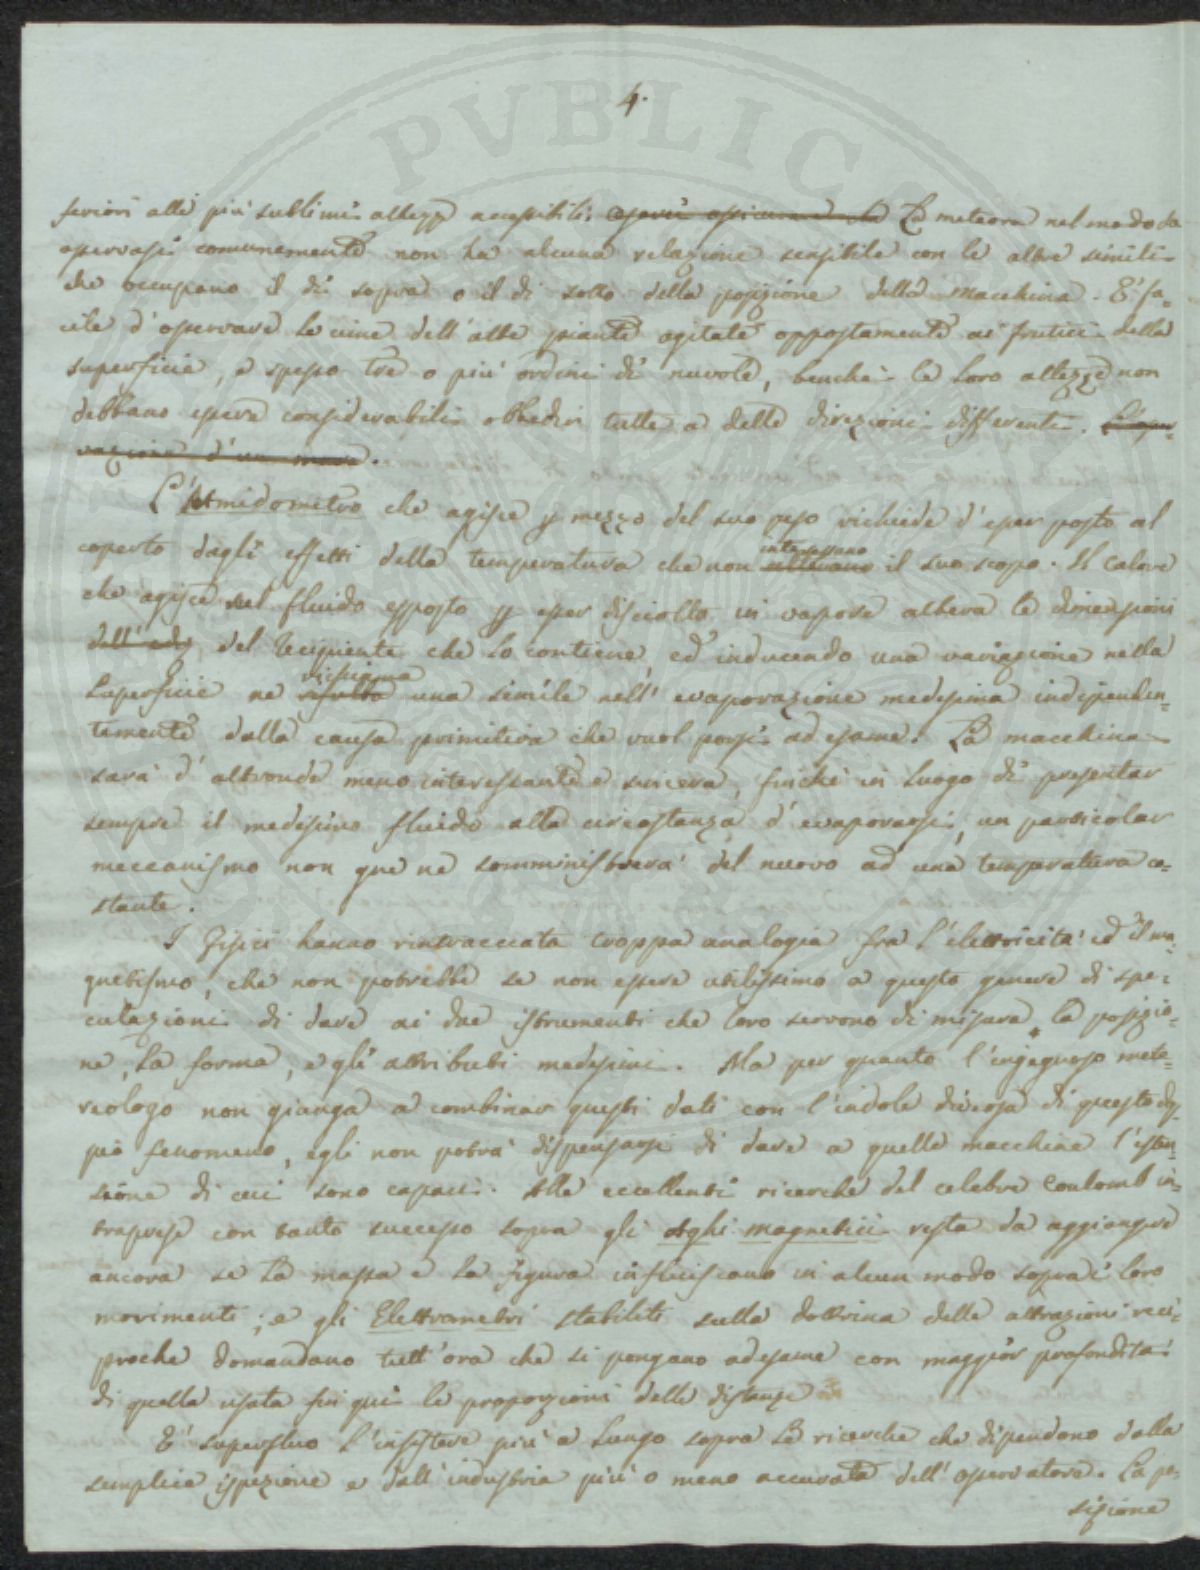 4.
feriori alle più sublimi altezze accessibili. La meteora nel modo da
osservasi comunemente non ha alcuna relazione sensibile con le altre simili
che occupano il di sopra o il di sotto della posizione della macchina. E' fa-
cile d'osservare le cime dell'alte piante agitate oppostamente ai frutici della
superficie, e spesso tre o più ordini di nuvole, benchè le loro altezze non
debbano essere considerabili obbedir tutte a delle direzioni differenti. L'osser-
vazione d'un mese.
L'Atmidometro che agisce p mezzo del suo peso richiede d'esser posto al
coperto dagli effetti della temperatura che non interessano il suo scopo. Il calore
che agisce nel fluido esposto p esser disciolto in vapore altera le dimensioni
del recipiente che lo contiene, ed inducendo una variazione nella
superficie ne una simile nell'evaporazione medesima indipenden-
temente dalla causa primitiva che vuol porsi ad esame. La macchina
sarà d'altronde meno interessante e sincera, finchè in luogo di presentar
sempre il medesimo fluido alla circostanza d'evaporarsi, un particolar
meccanismo non gne ne somministrerà del nuovo ad una temperatura co-
stante.
I Fisici hanno rintracciata troppa analogia fra l'elettricità ed il ma-
gnetismo, che non potrebbe se non essere utilissimo a questo genere di spe-
culazioni di dare ai due istrumenti che loro servono di misura la posizio-
ne, la forma, e gli attributi medesimi. Ma per quanto l'ingegnoso mete-
reologo non giunga a combinar questi dati con l'indole diversa di questo dop-
pio fenomeno, egli non potrà dispensarsi di dare a quelle macchine l'esten-
sione di cui sono capaci. Alle eccellenti ricerche del celebre Coulomb in-
traprese con tanto successo sopra gli Aghi magnetici resta da aggiungere
ancora se la massa e la figura influiscano in alcun modo sopra i loro
movimenti; e gli Elettrometri stabiliti sulla dottrina delle attrazioni reci-
proche domandano tutt'ora che si pongano ad esame con maggior profondità
di quella usata fin qui le proporzioni delle distanze
E' superfluo l'insistere più a lungo sopra le ricerche che dipendono dalla
semplice ispezione e dall'industria più o meno accurata dell'osservatore. La po-
sizione
PVBLICA